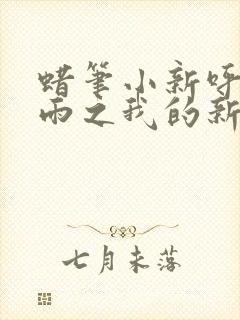 蜡笔小新呼
雨之我的新
七月未落